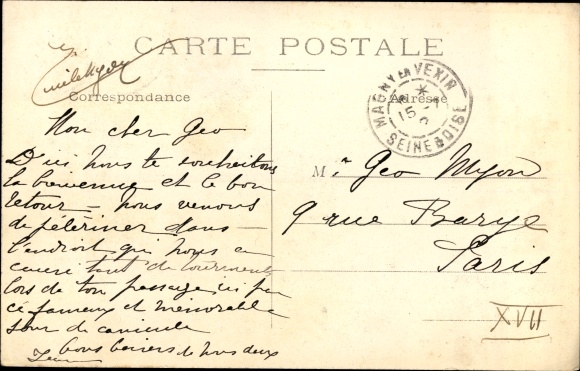 CARTE POSTALE
Correspondance
Adresse
MAGNY EN VEXIN
15
SEINE & OISE
Mon cher Geo
D'ici nous te souhaitons
la bienvenue et le bon
retour – nous venons
de pélériner dans
l'endroit qui nous a
causé tant de tourments
lors de ton passage ici par
ce fameux et mémorable
jour de canicule
bons baisers de nous deux
Mr Geo Myon
9 rue Barye
Paris
XVII